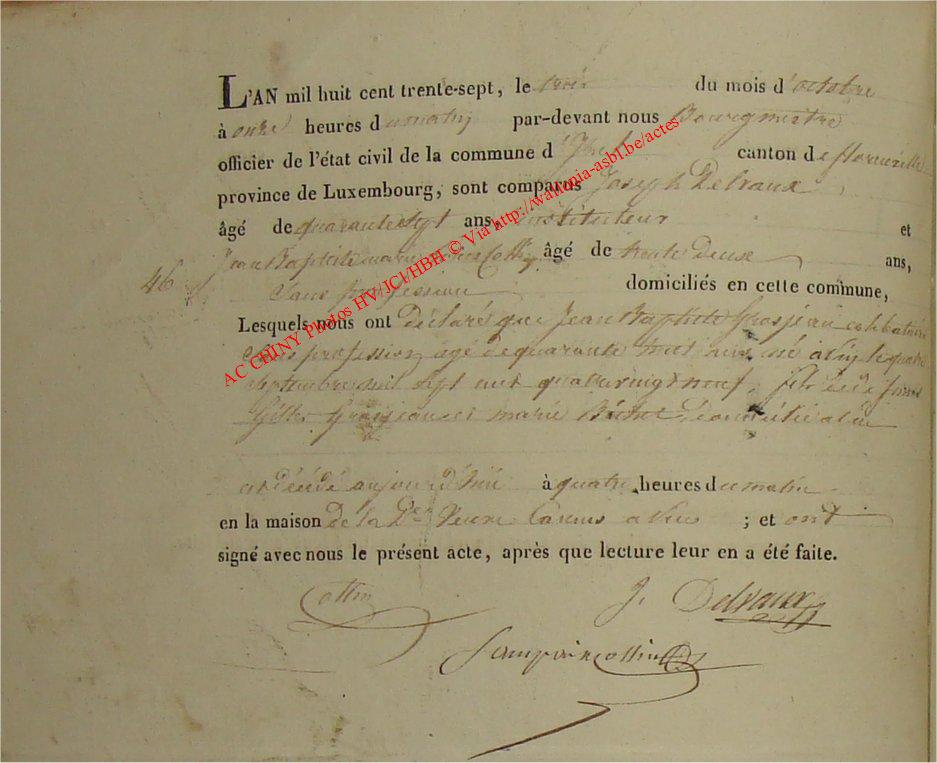 L'AN mil huit cent trente-sept, le trois du mois d'octobre
à onze heures du matin par-devant nous Bourgmestre
officier de l'état civil de la commune d' canton de florenville
province de Luxembourg, sont comparus Joseph Delvaux,
âgé de quarante sept ans, instituteur et
Jean Baptiste Collin âgé de trente deux ans,
46 Sans profession domiciliés en cette commune,
Lesquels nous ont déclaré que Jean Baptiste Grosjean celibataire
Sans profession, agé de quarante huit ans né a le quatre
septembre mil sept cent quatrevingt neuf, fils de
Gilles Grosjean et marie domicilié a
est décédé aujourd'hui à quatre heures du matin
en la maison de la Veuve a ; et ont
signé avec nous le présent acte, après que lecture leur en a été faite.
Collin J. Delvaux
AC CHINY Photos HV/JCl/HBH © Via http://wallonia-asbl.be/actes